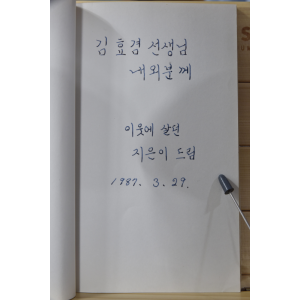 김효겸 선생님
내외분께
이웃에 살던
지은이 드림
1987. 3. 29.